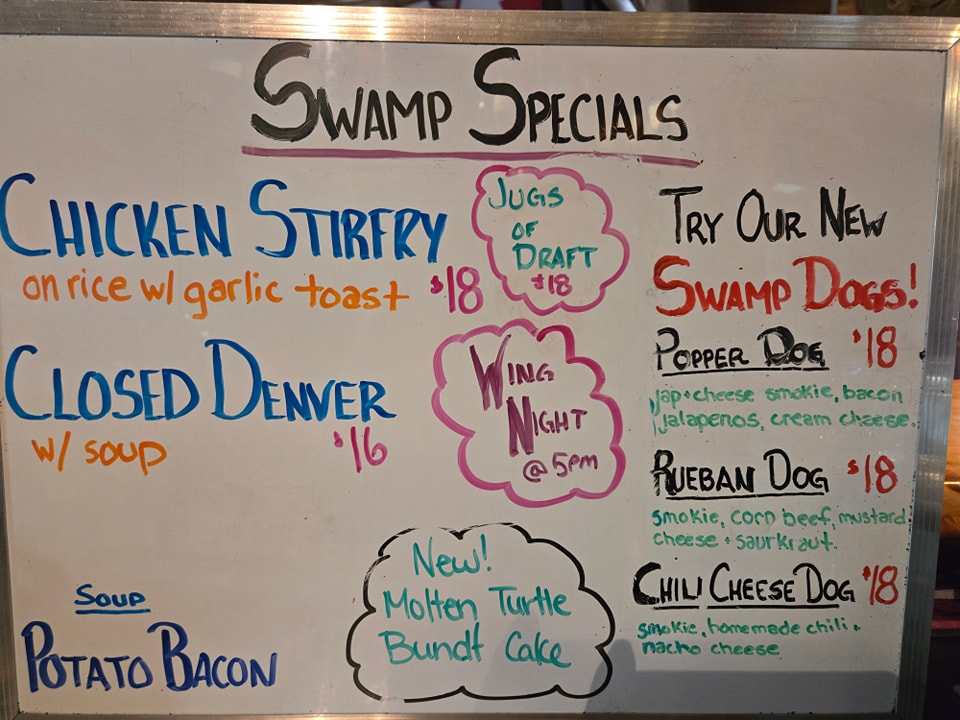 SWAMP SPECIALS
CHICKEN STIRFRY
on rice w/ garlic toast $18
CLOSED DENVER
w/ soup $16
SOUP
POTATO BACON
JUGS
OF
DRAFT
$18
WING
NIGHT
@ 5pm
New!
Molten Turtle
Bundt Cake
TRY OUR NEW
SWAMP DOGS!
POPPER DOG $18
jap + cheese smokie, bacon
jalapenos, cream cheese.
RUEBAN DOG $18
smokie, corn beef, mustard
cheese + saurkraut.
CHILI CHEESE DOG $18
smokie, homemade chili +
nacho cheese